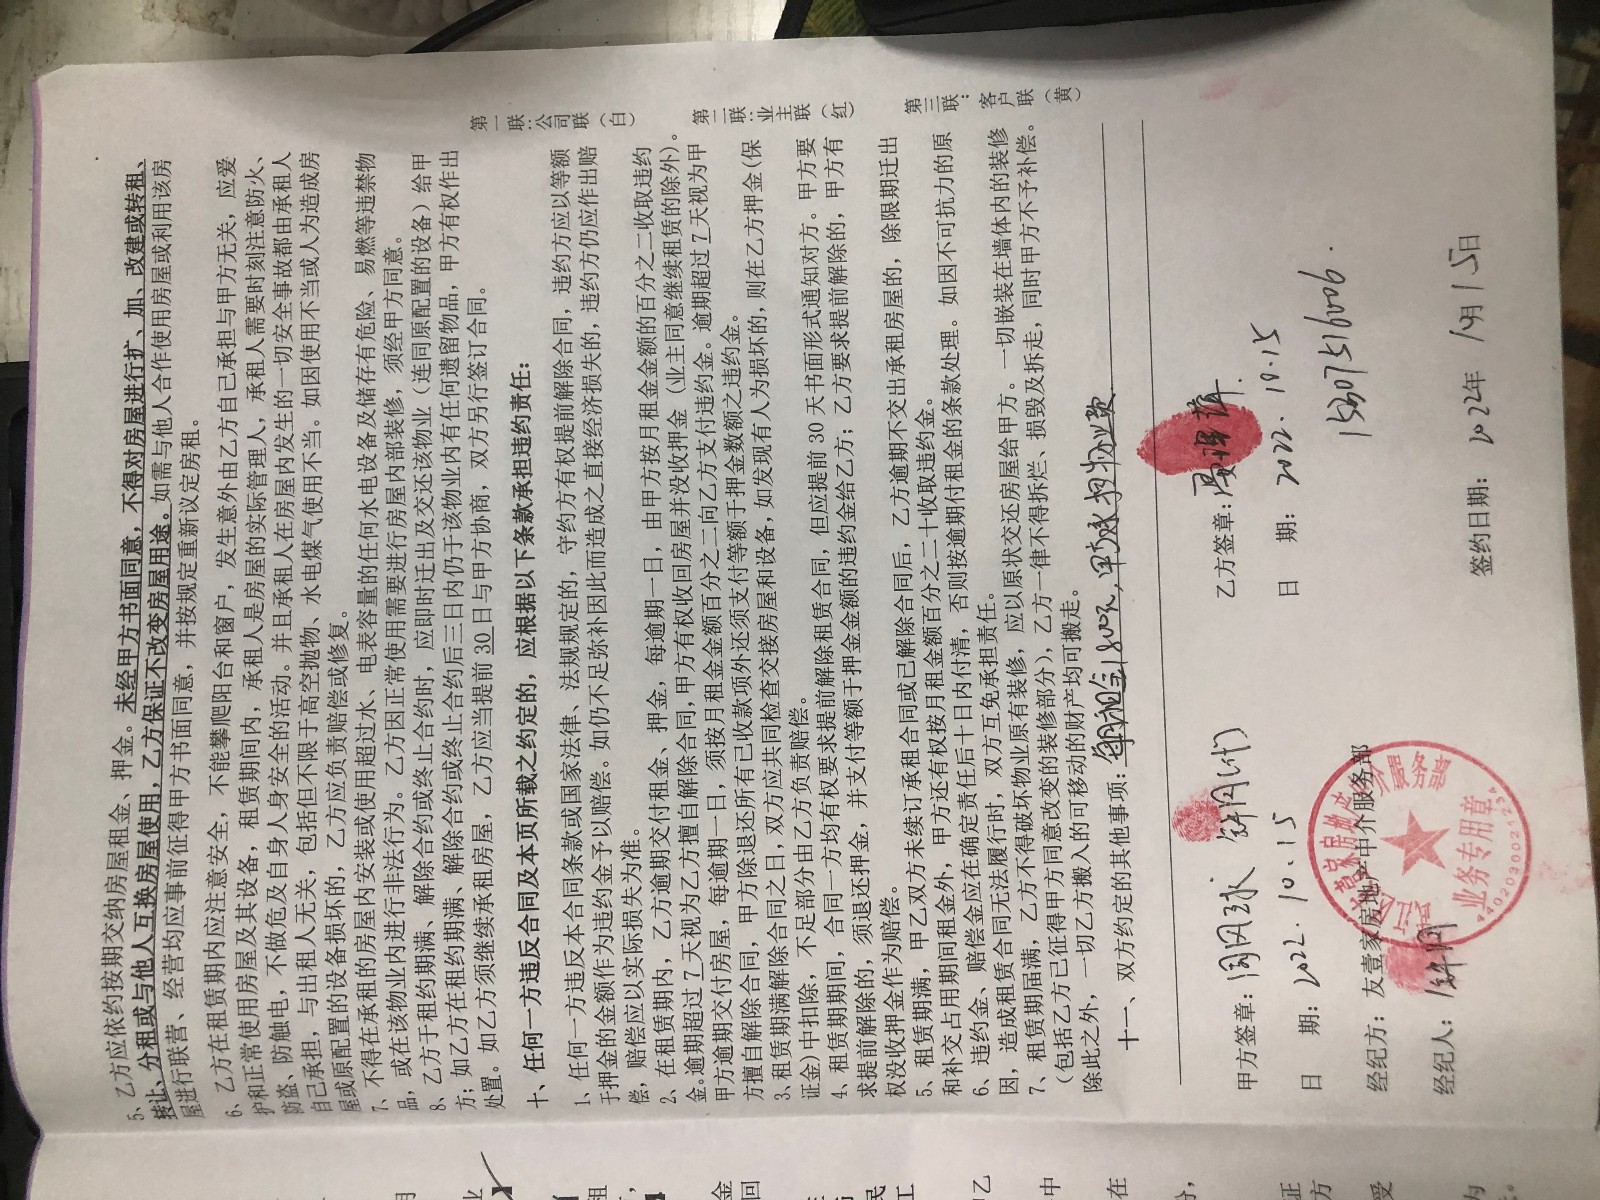 5、乙方应依约按期交纳房屋租金、押金。未经甲方书面同意，不得对房屋进行扩、加、改建或转租、
转让、分租或与他人互换房屋使用，乙方保证不改变房屋用途。如需与他人合作使用房屋或利用该房
屋进行联营、经营均应事前征得甲方书面同意，并按规定重新议定房租。
6、乙方在租赁期内应注意安全，不能攀爬阳台和窗户，发生意外由乙方自己承担与甲方无关，应爱
护和正常使用房屋及其设备，租赁期间内，承租人是房屋的实际管理人，承租人需要时刻注意防火、
防盗、防触电，不做危及自身人身安全的活动。并且承租人在房屋内发生的一切安全事故都由承租人
自己承担，与出租人无关，包括但不限于高空抛物、水电煤气使用不当。如因使用不当或人为造成房
屋或原配置的设备损坏的，乙方应负责赔偿或修复。
7、不得在承租的房屋内安装或使用超过水、电表容量的任何水电设备及储存有危险、易燃等违禁物
品，或在该物业内进行非法行为。乙方因正常使用需要进行房屋内部装修，须经甲方同意。
8、乙方于租约期满、解除合约或终止合约时，应即时迁出及交还该物业（连同原配置的设备）给甲
方；如乙方在租约期满、解除合约或终止合约后三日内仍于该物业内有任何遗留物品，甲方有权作出
处置。如乙方须继续承租房屋，乙方应当提前 30 日与甲方协商，双方另行签订合同。
十、任何一方违反合同及本页所载之约定的，应根据以下条款承担违约责任：
1、任何一方违反本合同条款或国家法律、法规规定的，守约方有权提前解除合同，违约方应以等额
于押金的金额作为违约金予以赔偿。如仍不足弥补因此而造成之直接经济损失的，违约方仍应作出赔
偿，赔偿应以实际损失为准。
2、在租赁期内，乙方逾期交付租金、押金，每逾期一日，由甲方按月租金金额的百分之二收取违约
金。逾期超过 7 天视为乙方擅自解除合同，甲方有权收回房屋并没收押金（业主同意继续租赁的除外）。
甲方逾期交付房屋，每逾期一日，须按月租金金额百分之二向乙方支付违约金。逾期超过 7 天视为甲
方擅自解除合同，甲方除退还所有已收款项外还须支付等额于押金数额之违约金。
3、租赁期满解除合同之日，双方应共同检查交接房屋和设备，如发现有人为损坏的，则在乙方押金（保
证金）中扣除，不足部分由乙方负责赔偿。
4、租赁期期间，合同一方均有权要求提前解除租赁合同，但应提前 30 天书面形式通知对方。甲方要
求提前解除的，须退还押金，并支付等额于押金金额的违约金给乙方；乙方要求提前解除的，甲方有
权没收押金作为赔偿。
5、租赁期满，甲乙双方未续订承租合同或已解除合同后，乙方逾期不交出承租房屋的，除限期迁出
和补交占用期间租金外，甲方还有权按月租金额百分之二十收取违约金。
6、违约金、赔偿金应在确定责任后十日内付清，否则按逾期付租金的条款处理。如因不可抗力的原
因，造成租赁合同无法履行时，双方互免承担责任。
7、租赁期届满，乙方不得破坏物业原有装修，应以原状交还房屋给甲方。一切嵌装在墙体内的装修
（包括乙方已征得甲方同意改变的装修部分），乙方一律不得拆烂、损毁及拆走，同时甲方不予补偿。
除此之外，一切乙方搬入的可移动的财产均可搬走。
十一、双方约定的其他事项：每月租金1800元，
第一联：公司联（白）
第二联：业主联（红）
第三联：客户联（黄）
甲方签章：
日 期：2022.10.15
乙方签章：
日 期：2022.10.15
15307516006.
经纪方：友壹家房地产中介服务部
经纪人：
签约日期：2022年10月15日
业务专用章